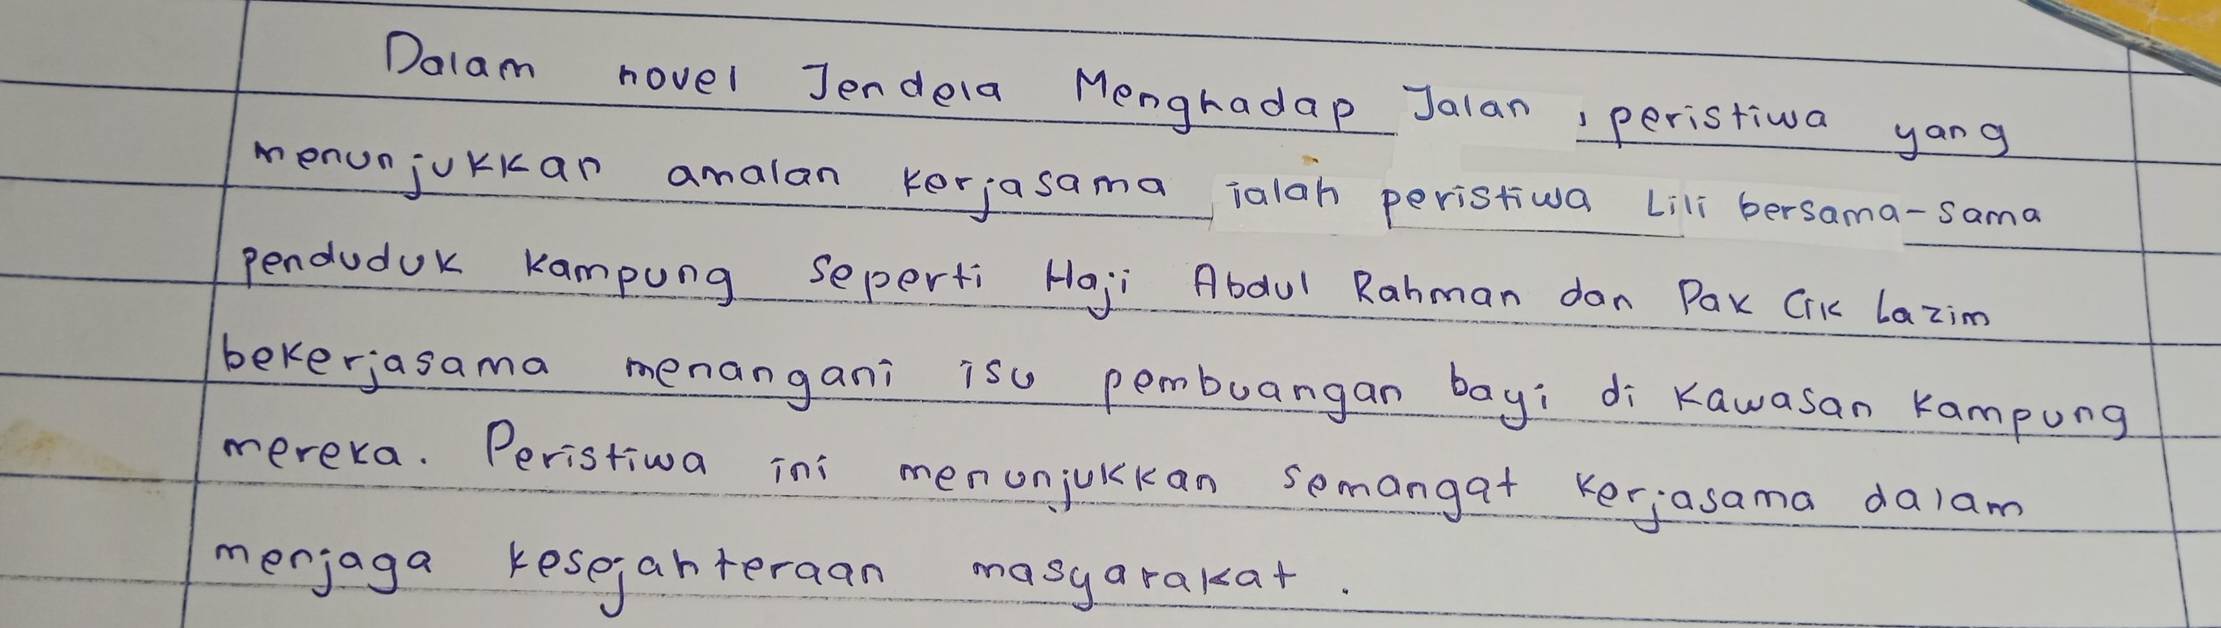 Dalam novel Jendela Menghadap Jalan, peristiwa yang
menunjukkan amalan kerjasama ialah peristiwa Lili bersama-sama
penduduk kampung seperti Haji Abdul Rahman dan Pak Cik Lazim
bekerjasama menangani isu pembuangan bayi di kawasan kampung
mereka. Peristiwa ini menunjukkan semangat kerjasama dalam
menjaga kesejahteraan masyarakat.